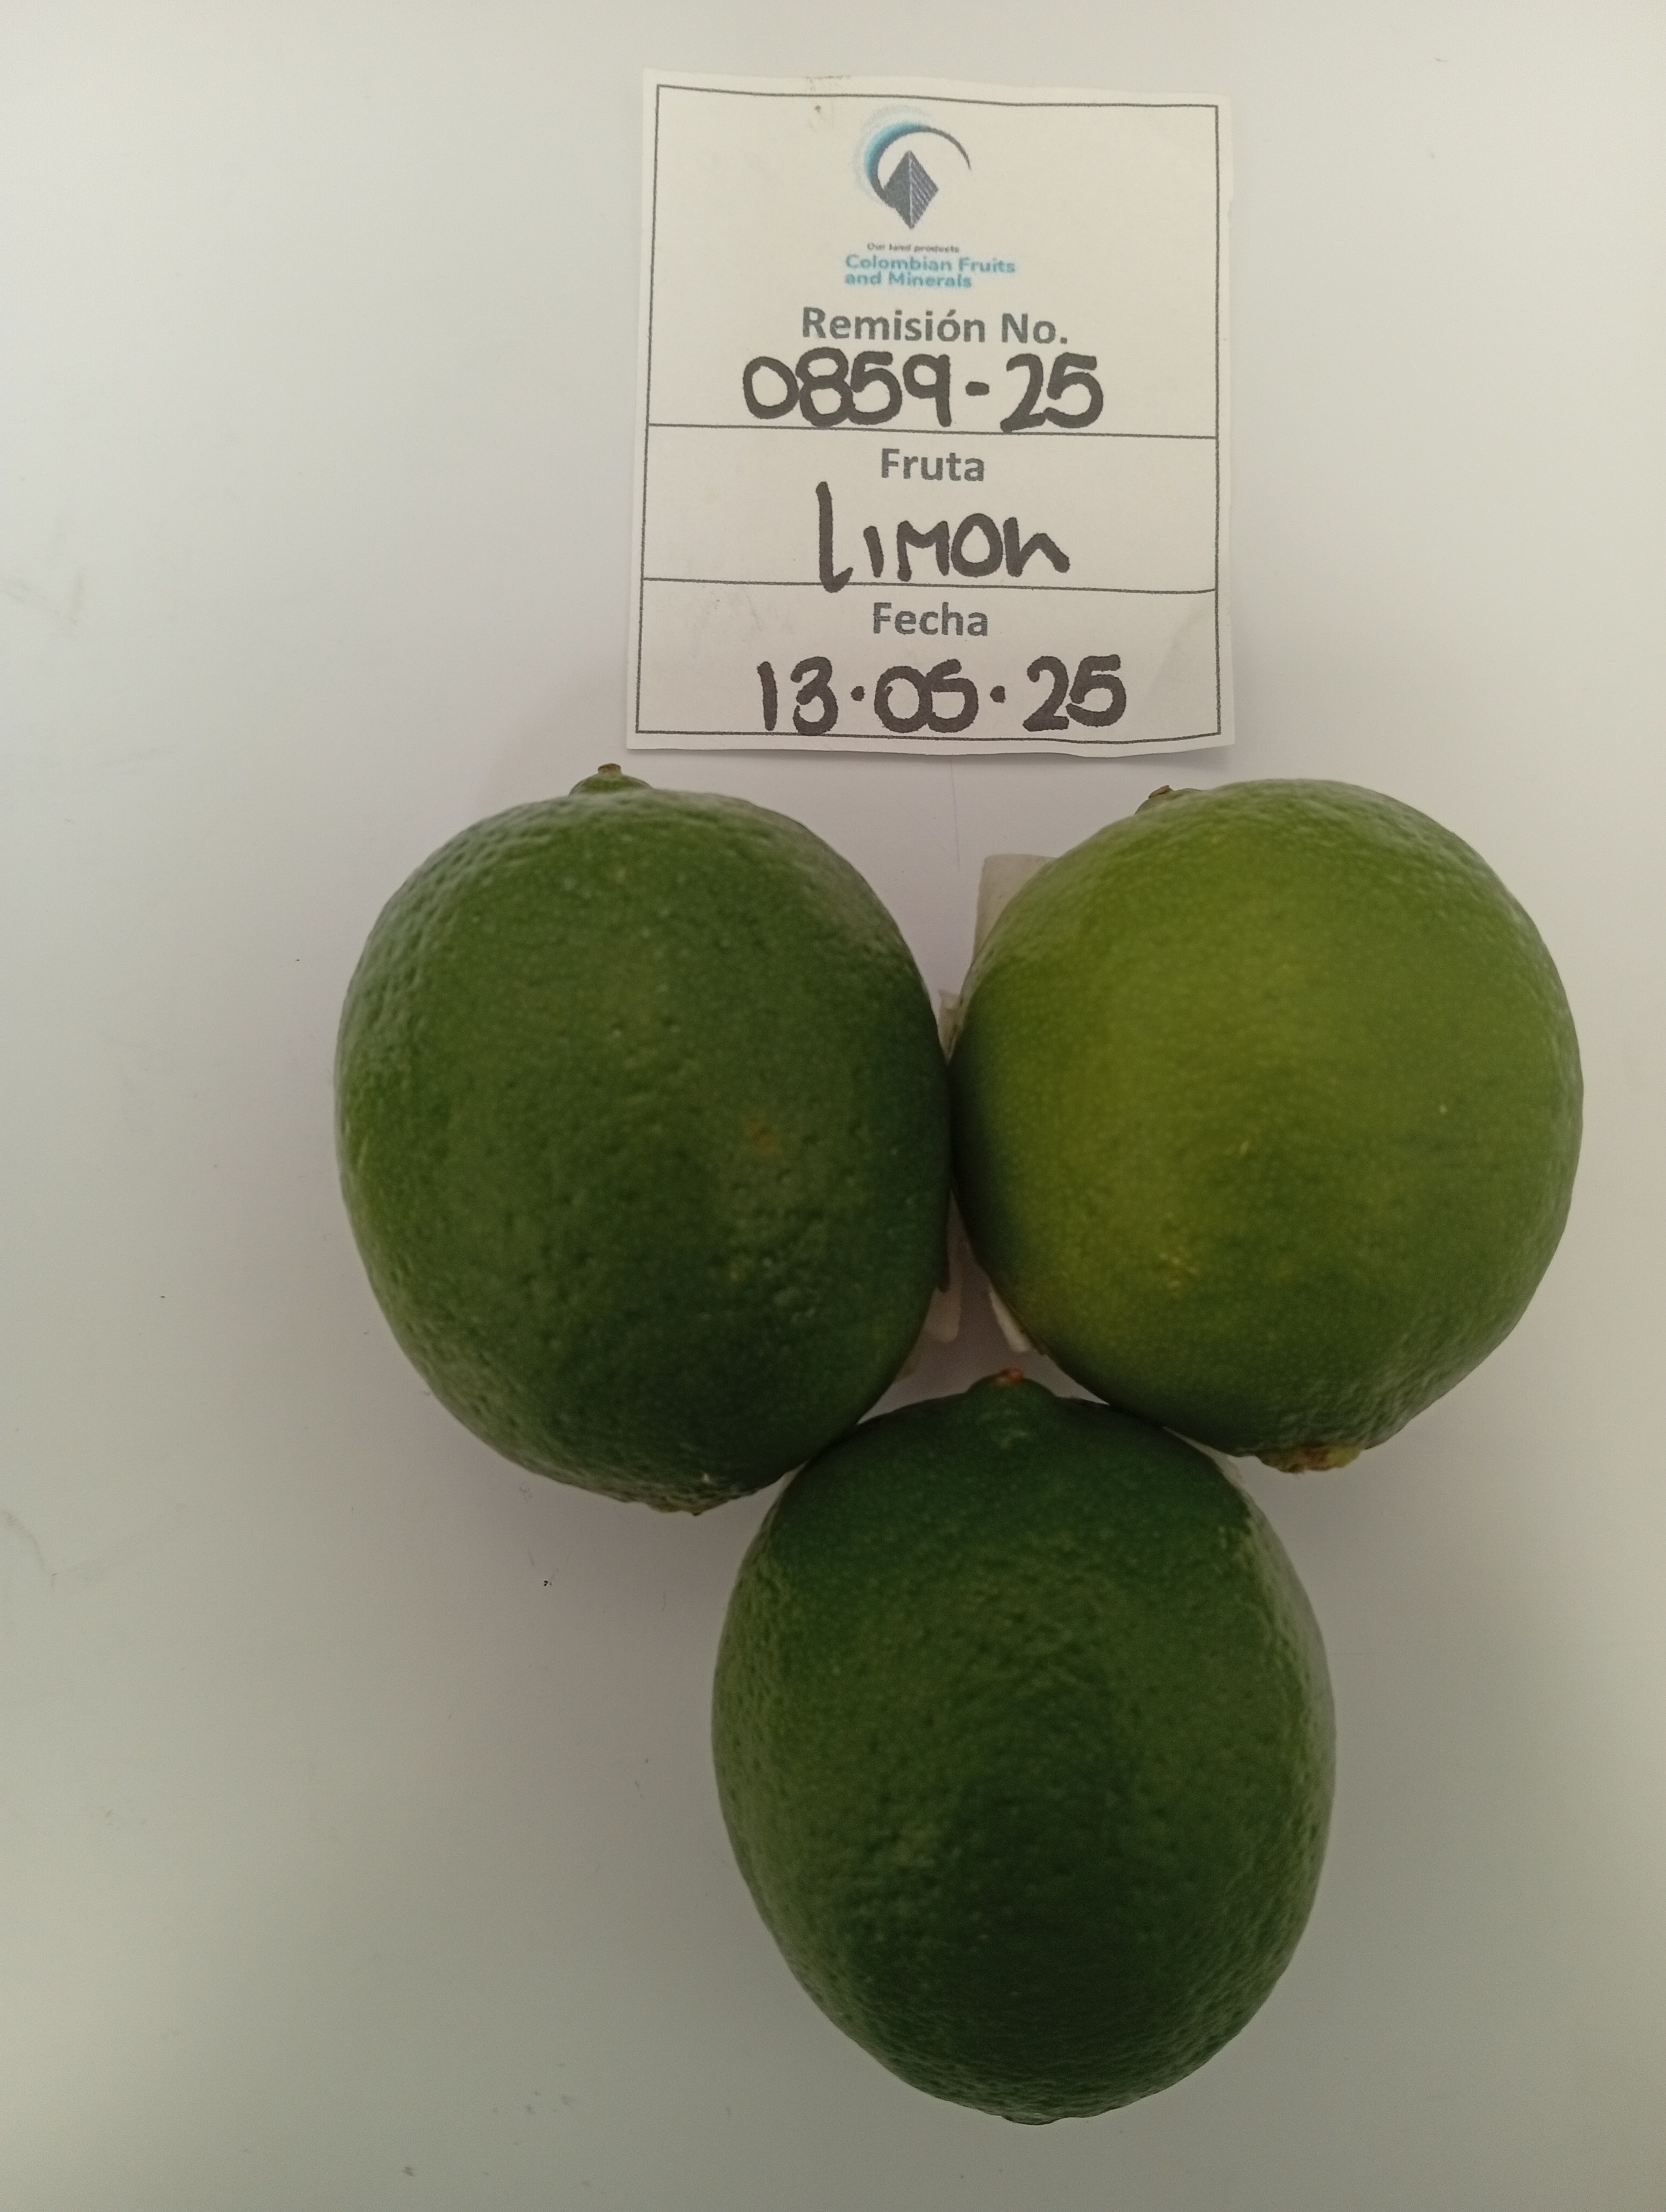 Our land products
Colombian Fruits
and Minerals
Remisión No.
0859-25
Fruta
Limon
Fecha
13.05.25